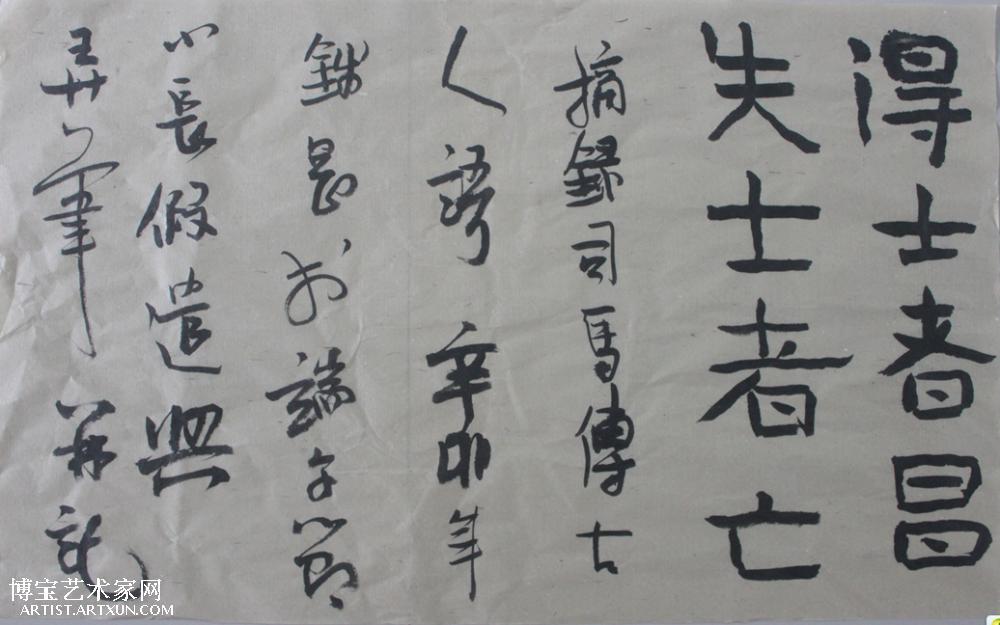 得士者昌
失士者亡
摘録司馬傳古
人語 辛卯年
鉄昌 於端午節
小長假遣興
弄筆 并記
博宝艺术家网
ARTIST.ARTXUN.COM